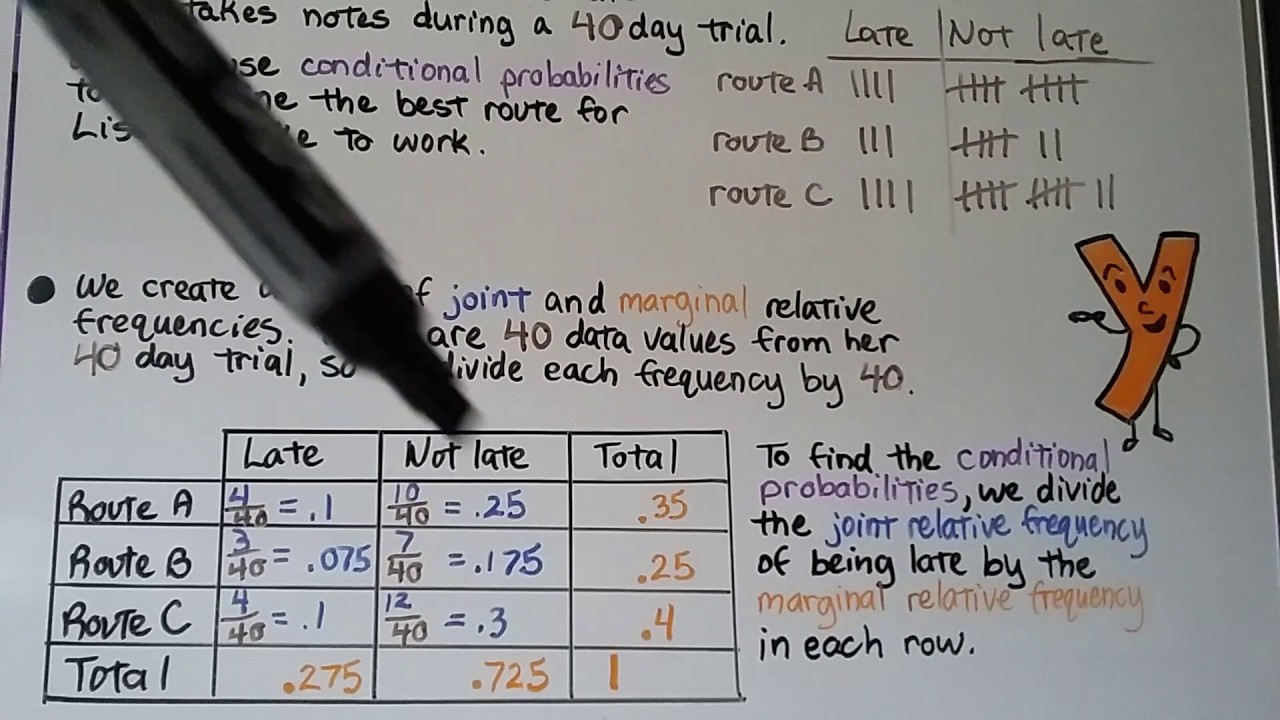 takes notes during a 40 day trial.
conditional probabilities
the best route for
to work.
Late Not late
route A
route B
route C
We create of joint and marginal relative
frequencies. are 40 data values from her
40 day trial, so divide each frequency by 40.
Late Not late Total
Route A 4/40 = .1 10/40 = .25 .35
Route B 3/40 = .075 7/40 = .175 .25
Route C 4/40 = .1 12/40 = .3 .4
Total .275 .725 1
To find the conditional
probabilities, we divide
the joint relative frequency
of being late by the
marginal relative frequency
in each row.